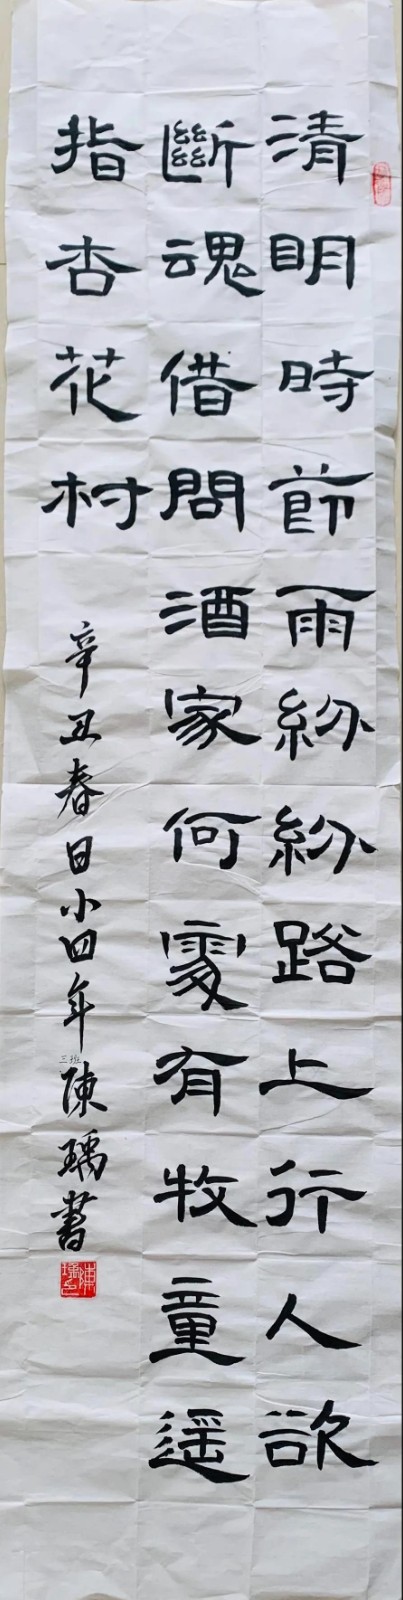 清明時節雨紛紛路上行人欲
斷魂借問酒家何處有牧童遥
指杏花村
辛丑春日小四年三班陳瑀書